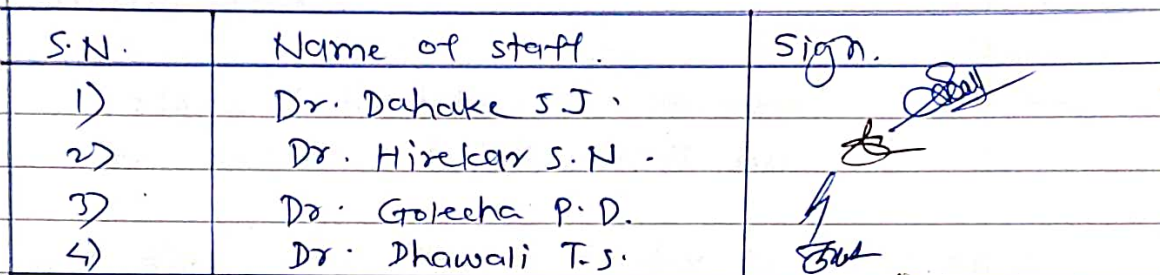 S.N. Name of staff. Sign.
1) Dr. Dahake S.J.
2) Dr. Hirekar S.N.
3) Dr. Golecha P.D.
4) Dr. Dhawali T.S.